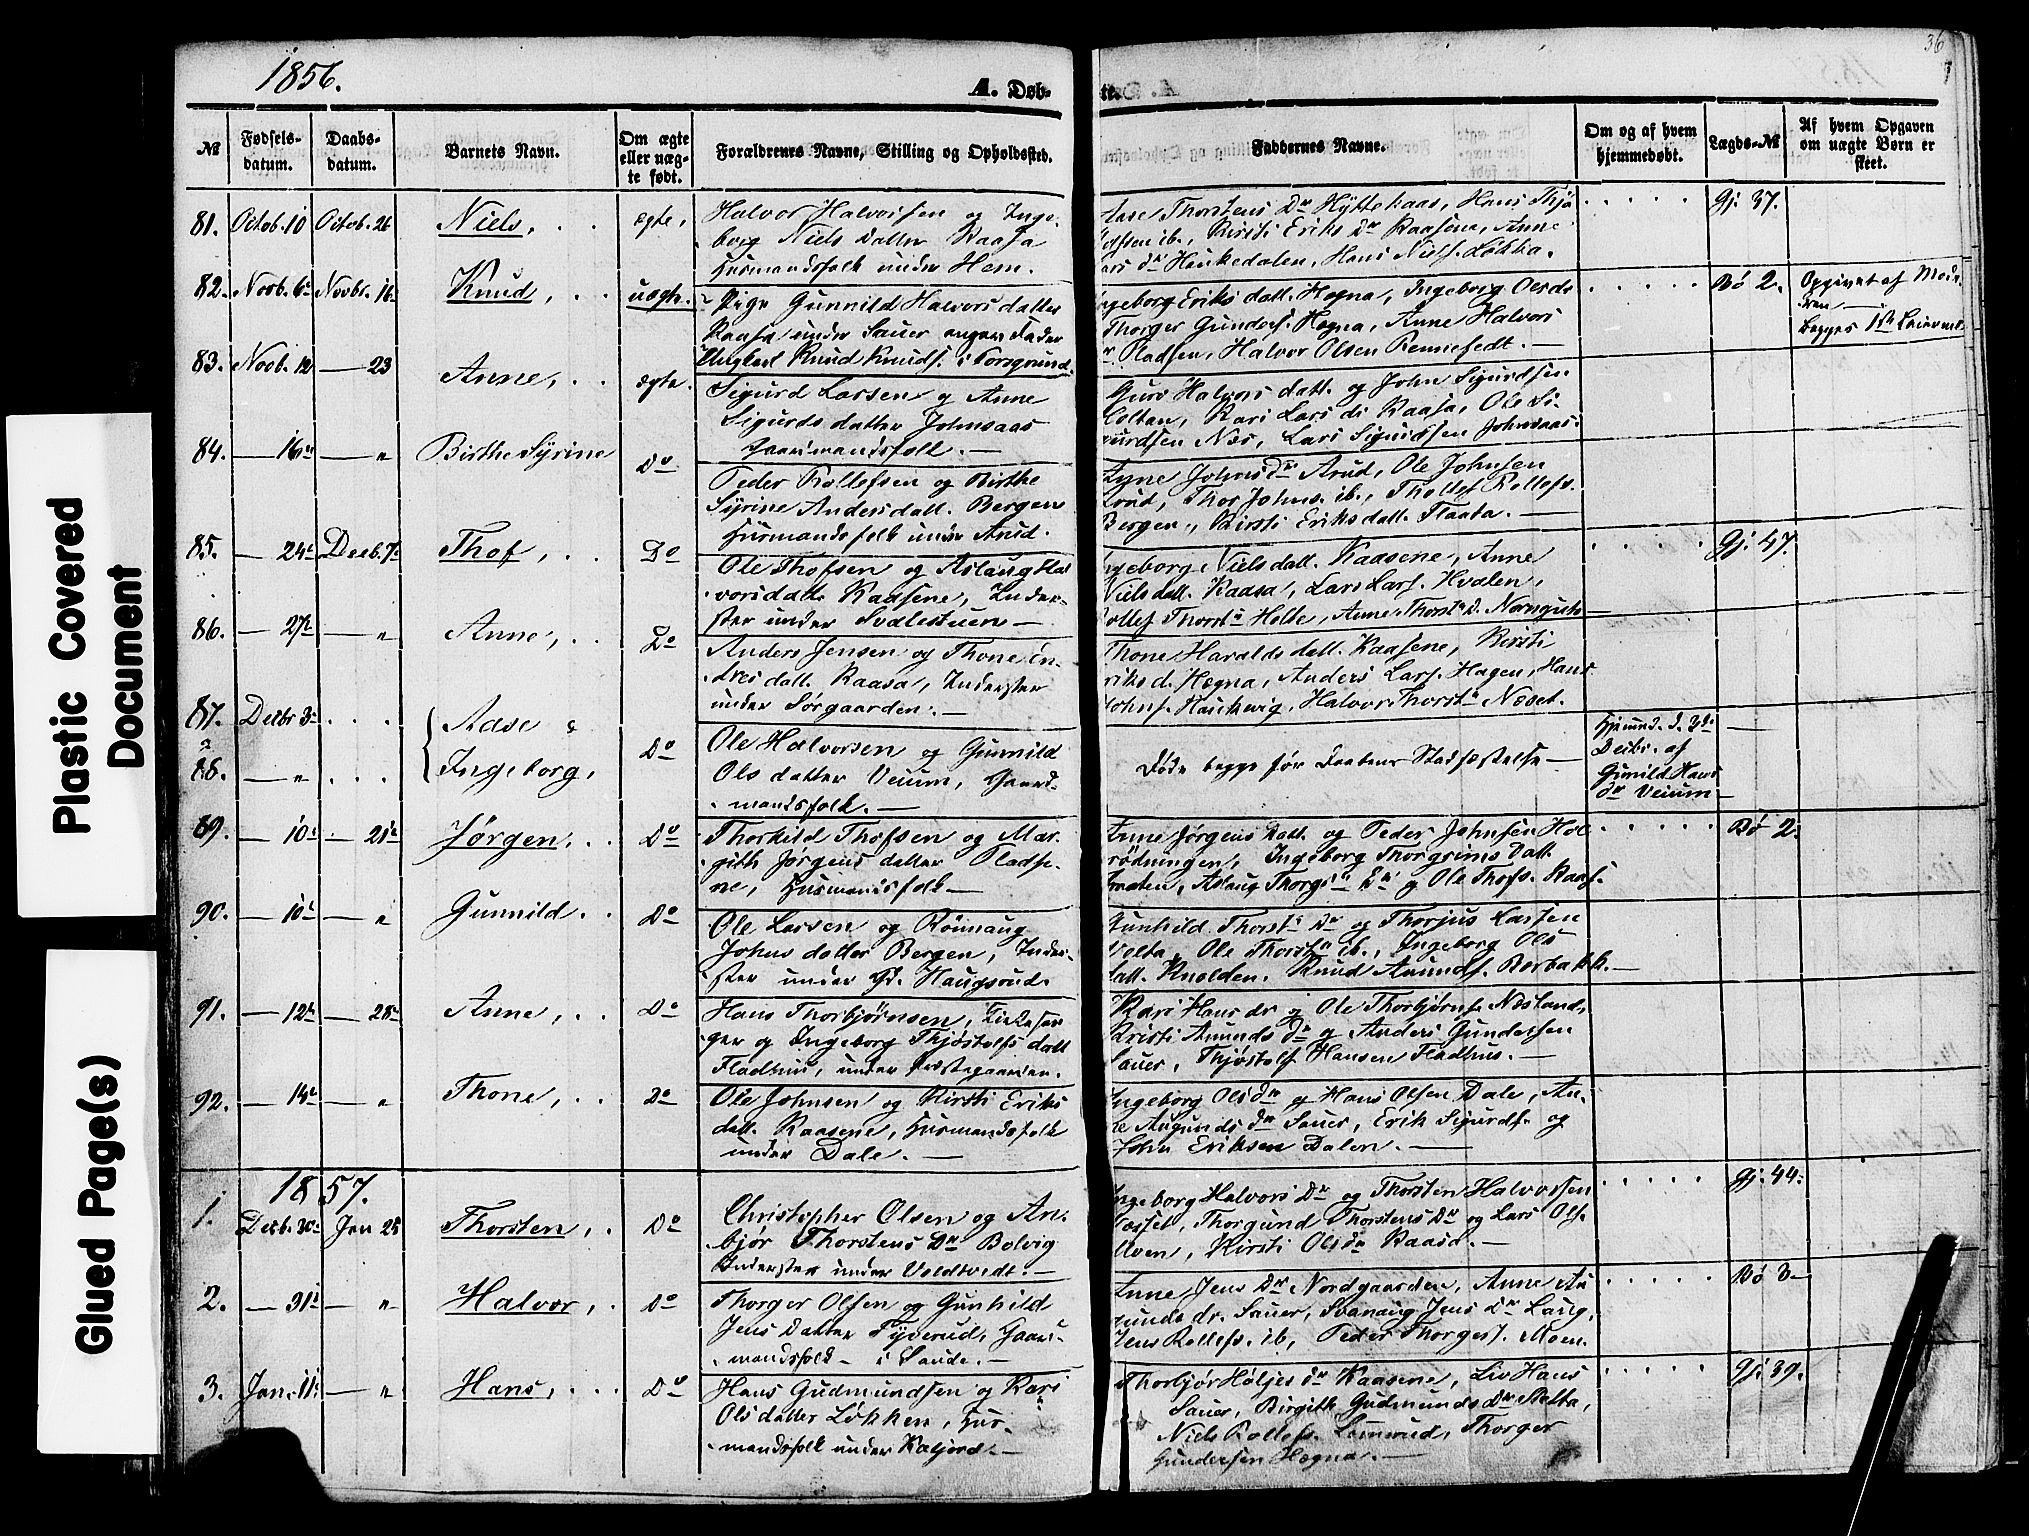 Plastic Covered
Document
Glued Page(s)
1856.
A. Døb-
te.
36
№
Fødsels-
datum.
Daabs-
datum.
Barnets Navn.
Om ægte
eller uæg-
te født.
Forældrenes Navne, Stilling og Opholdssted.
Faddernes Navne.
Om og af hvem
hjemmedøbt.
Lægds-№
Af hvem Opgaven
om uægte Børn er
skeet.
81. Octob. 10 Octob. 26 Niels, ægte,
Halvor Halvorsen og Inge-
borg Niels Datter Kaasa
Husmandsfolk under Hem.
Aase Thorstens Dr Hyttehaas, Hans Thjo
ib., Kirsti Eriks Dr Kaasene, Anne
Lars dr Heukedalen, Hans Nielf. Løkka.
Gj. 37.
82. Novb. 6te Novbr. 16 Knud, uægte.
Pige Gunnild Halvors datter
Kaasa under Sauer angav Fader
Ungkarl Knud Knuds. i Porsgrund.
Ingeborg Eriks datt. Hogna, Ingeborg Olsdr
Thorger Gunders. Hogna, Anne Halvors
dr Pladsen, Halvor Olsen Rennefedt. —
Bø 2.
Opgivet af Mode-
ren —
begges 1ste Leierm.
83. Novb. 12 — 23 Anne, ægte.
Sigurd Larsen og Anne
Sigurds datter Johnsaas
Gaardmandsfolk. —
Gurv Halvors datt. og John Sigurdsen
Holtan, Kari Lars dr Kaasa, Ole Si-
gurdsen Næs, Lars Sigurdsen Johnsaas.
84. — 16de — " Birthe Syrine Do
Peder Rollefsen og Birthe
Syrine Anders datt. Bergen
Husmandsfolk under Arud.
Johns dr Arud, Ole Johnsen
Arud, Thor Johns. ib., Tholles Rollefs.
Bergen, Kirsti Eriks datt. Flaata. —
85. — 24de Decb. 7de Thof, Do
Ole Thofsen og Aslaug Hal
vorsdatt. Kaasene, Inder-
ster under Svælestuen —
Ingeborg Niels datt. Kaasene, Anne
Niels datt. Kaasa, Lars Lars. Hvalen,
Rollef Thorstn Holte, Anne Thorstn D. Nornguth —
Gj. 47.
86. — 27de — " Anne, Do
Anders Jensen og Thone En-
dres datt. Kaasa, Inderster
under Sørgaarden. —
Thone Haralds datt. Kaasene, Kirsti
Eriks d. Hægna, Anders Lars. Hagen, Hans
Johns. Haukevig, Halvor Thorstn Næset.
87. Decbr 3de Aase &
88. — " Ingeborg, Do
Ole Halvorsen og Gunnild
Ols datter Veium, Gaard-
mandsfolk. —
Døde begge før Daabens Stadfæstelse —
Hjemmd. d. 3de
Decbr. af
Gunild Hans
dr Veium —
89. — 10de — 21de Jørgen, Do
Thorkild Thofsen og Mar-
gith Jørgens datter Pladse-
ne, Husmandsfolk —
Anne Jørgens Datt. og Peder Johnsen Hol
Ingeborg Thorgrims Datt.
Aslaug Thorgs Dr og Ole Thofs. Kaas.
Bø 2.
90. — 10de — " Gunnild Do
Ole Larsen og Rönnaug
Johns datter Bergen, Inder-
ster under Gd. Haugsrud.
Gunhild Thorstn Dr og Thorjus Larsen
Volta, Ole Thorstn ib., Ingeborg Ols
datt. Knolden. Knud Amunds. Borbakk. —
91. — 12te — 28de Anne, Do
Hans Thorbjørnsen, Kirkesan-
ger og Ingeborg Thjøstolfs datt
Fladhus, under Præstegaarden.
Kari Hans dr og Ole Thorbjørns. Næsland,
Kirsti Amunds Dr og Anders Gundersen
Sauer, Thjøstolf Hansen Fladhus. —
92. — 14de — " Thone, Do
Ole Johnsen og Kirsti Eriks
datt. Kaasene, Husmandsfolk
under Dale. —
Ingeborg Ols dr og Hans Olsen Dale, An-
ne Augunds dr Sauer, Erik Sigurds. og
John Eriksen Dalen. —
1857.
1. Decb. 30te Jan 25 Thorsten, Do
Christopher Olsen og An-
bjør Thorstens Dr Bolvig
Inderster under Voldtvedt. —
Ingeborg Halvors Dr og Thorsten Halvorsen
Thorgund Thorstens Dr og Lars Ols.
Kirsti Ols dr Kaasa. —
Gj. 44.
2. — 31te — " Halvor, Do
Thorger Olsen og Gunhild
Jens Datter Tyverud, Gaard-
mandsfolk — i Saude. —
Anne Jens Dr Nordgaarden, Anne Au
gunds dr. Sauer, Svanaug Jens dr Laug,
Jens Rollefs. ib, Peder Thorges. Moen.
Bø 3 —
3. Jan. 11te — " Hans, Do
Hans Gudmundsen og Kari
Ols datter Løkken, Hus-
mandsfolk under Kaljord. —
Thorbjør Høljes dr Kaasene, Liv Hans
Sauer, Birgith Gudmunds dr Melta,
Niels Rollefs. Lønnrud, Thorger
Gundersen Hægna. —
Gj. 39.